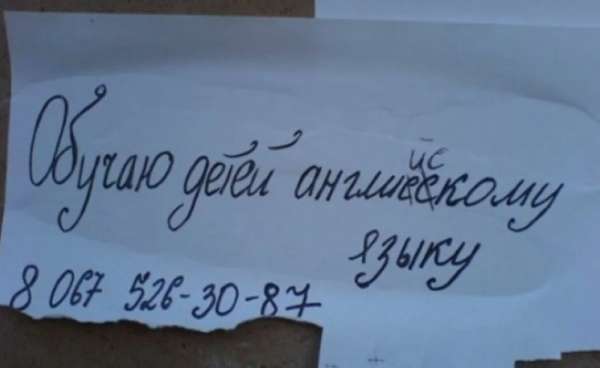 Обучаю детей английскому
языку
8 067 526-30-87